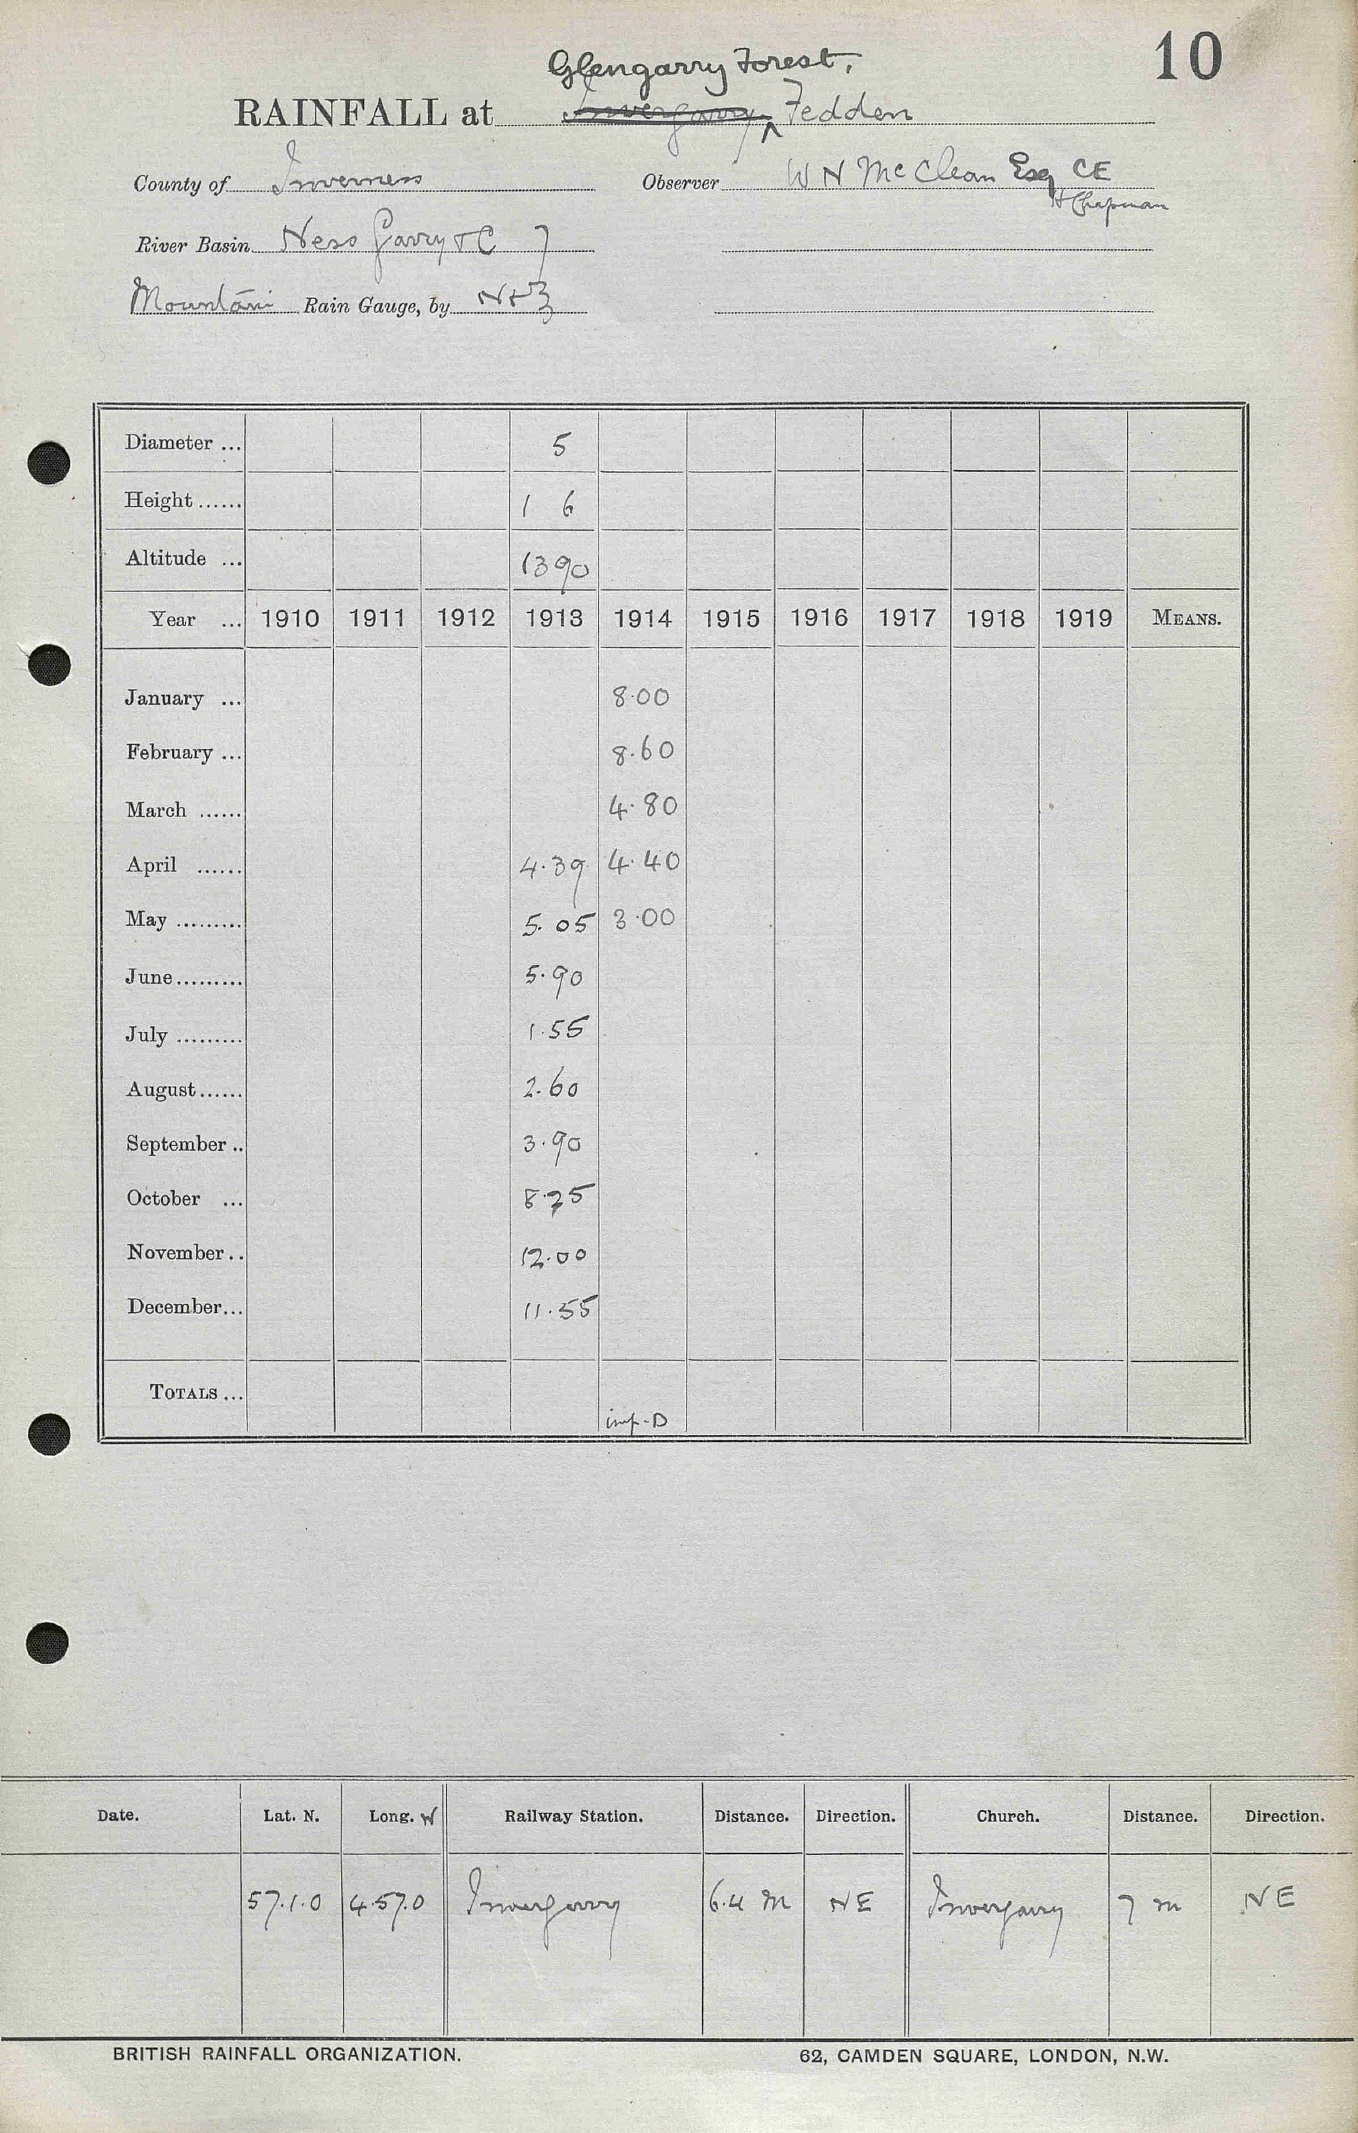 10
Glengarry Forest,
RAINFALL at Invergarry Fedden
County of Inverness Observer W N McClean Esq CE
H Chapman
River Basin Ness Garry & C 7
Mountain Rain Gauge, by N&Z
Diameter ... 5
Height ...... 1 6
Altitude ... 1390
Year ... 1910 1911 1912 1913 1914 1915 1916 1917 1918 1919 MEANS.
January ... 8.00
February ... 8.60
March ...... 4.80
April ...... 4.39 4.40
May ......... 5.05 3.00
June ......... 5.90
July ......... 1.55
August ...... 2.60
September .. 3.90
October ... 8.75
November .. 12.00
December ... 11.55
TOTALS ...
imp. D
Date. Lat. N. Long. W Railway Station. Distance. Direction. Church. Distance. Direction.
57.1.0 4.57.0 Invergarry 6.4 m NE Invergarry 7 m NE
BRITISH RAINFALL ORGANIZATION. 62, CAMDEN SQUARE, LONDON, N.W.